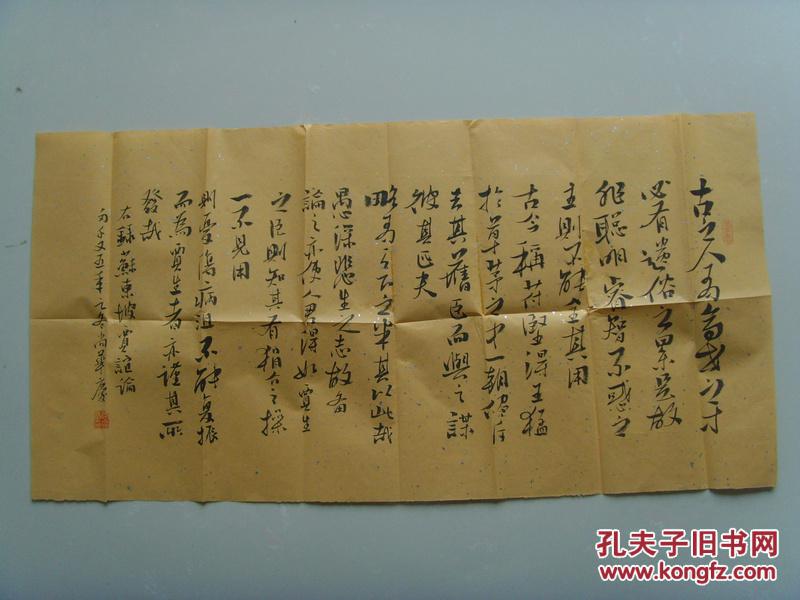 古之人有高世之才
必有遺俗之累是故
非聰明睿智不惑之
主則不能全其用
古今稱苻堅得王猛
於草茅之中一朝儘斥
去其舊臣而與之謀
彼其匹夫
略有天下之半其以此哉
愚深悲生之志故备
論之亦使人君得如賈生
之臣則知其有狷介之操
一不見用
則憂傷病沮不能复振
而為賈生者亦謹其所
發哉
右錄蘇東坡賈誼論
千又五年之冬尚華
孔夫子旧书网
www.kongfz.com